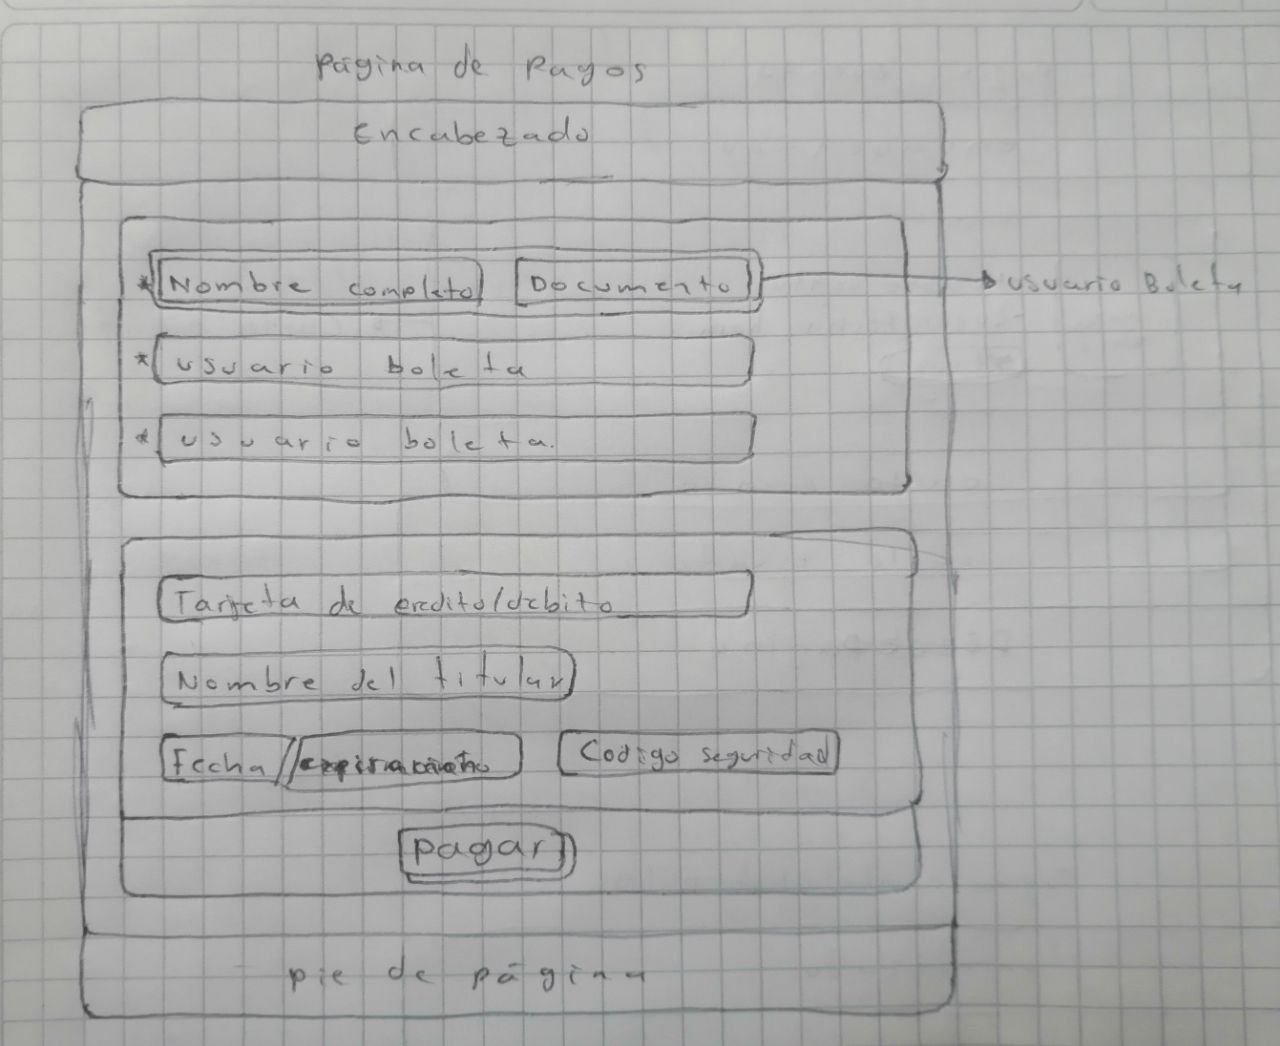 Página de Pagos
Encabezado
* Nombre completo Documento usuario Boleta
* usuario boleta
* usuario boleta.
Tarjeta de credito/debito
Nombre del titular
Fecha / Codigo seguridad
pagar
pie de página